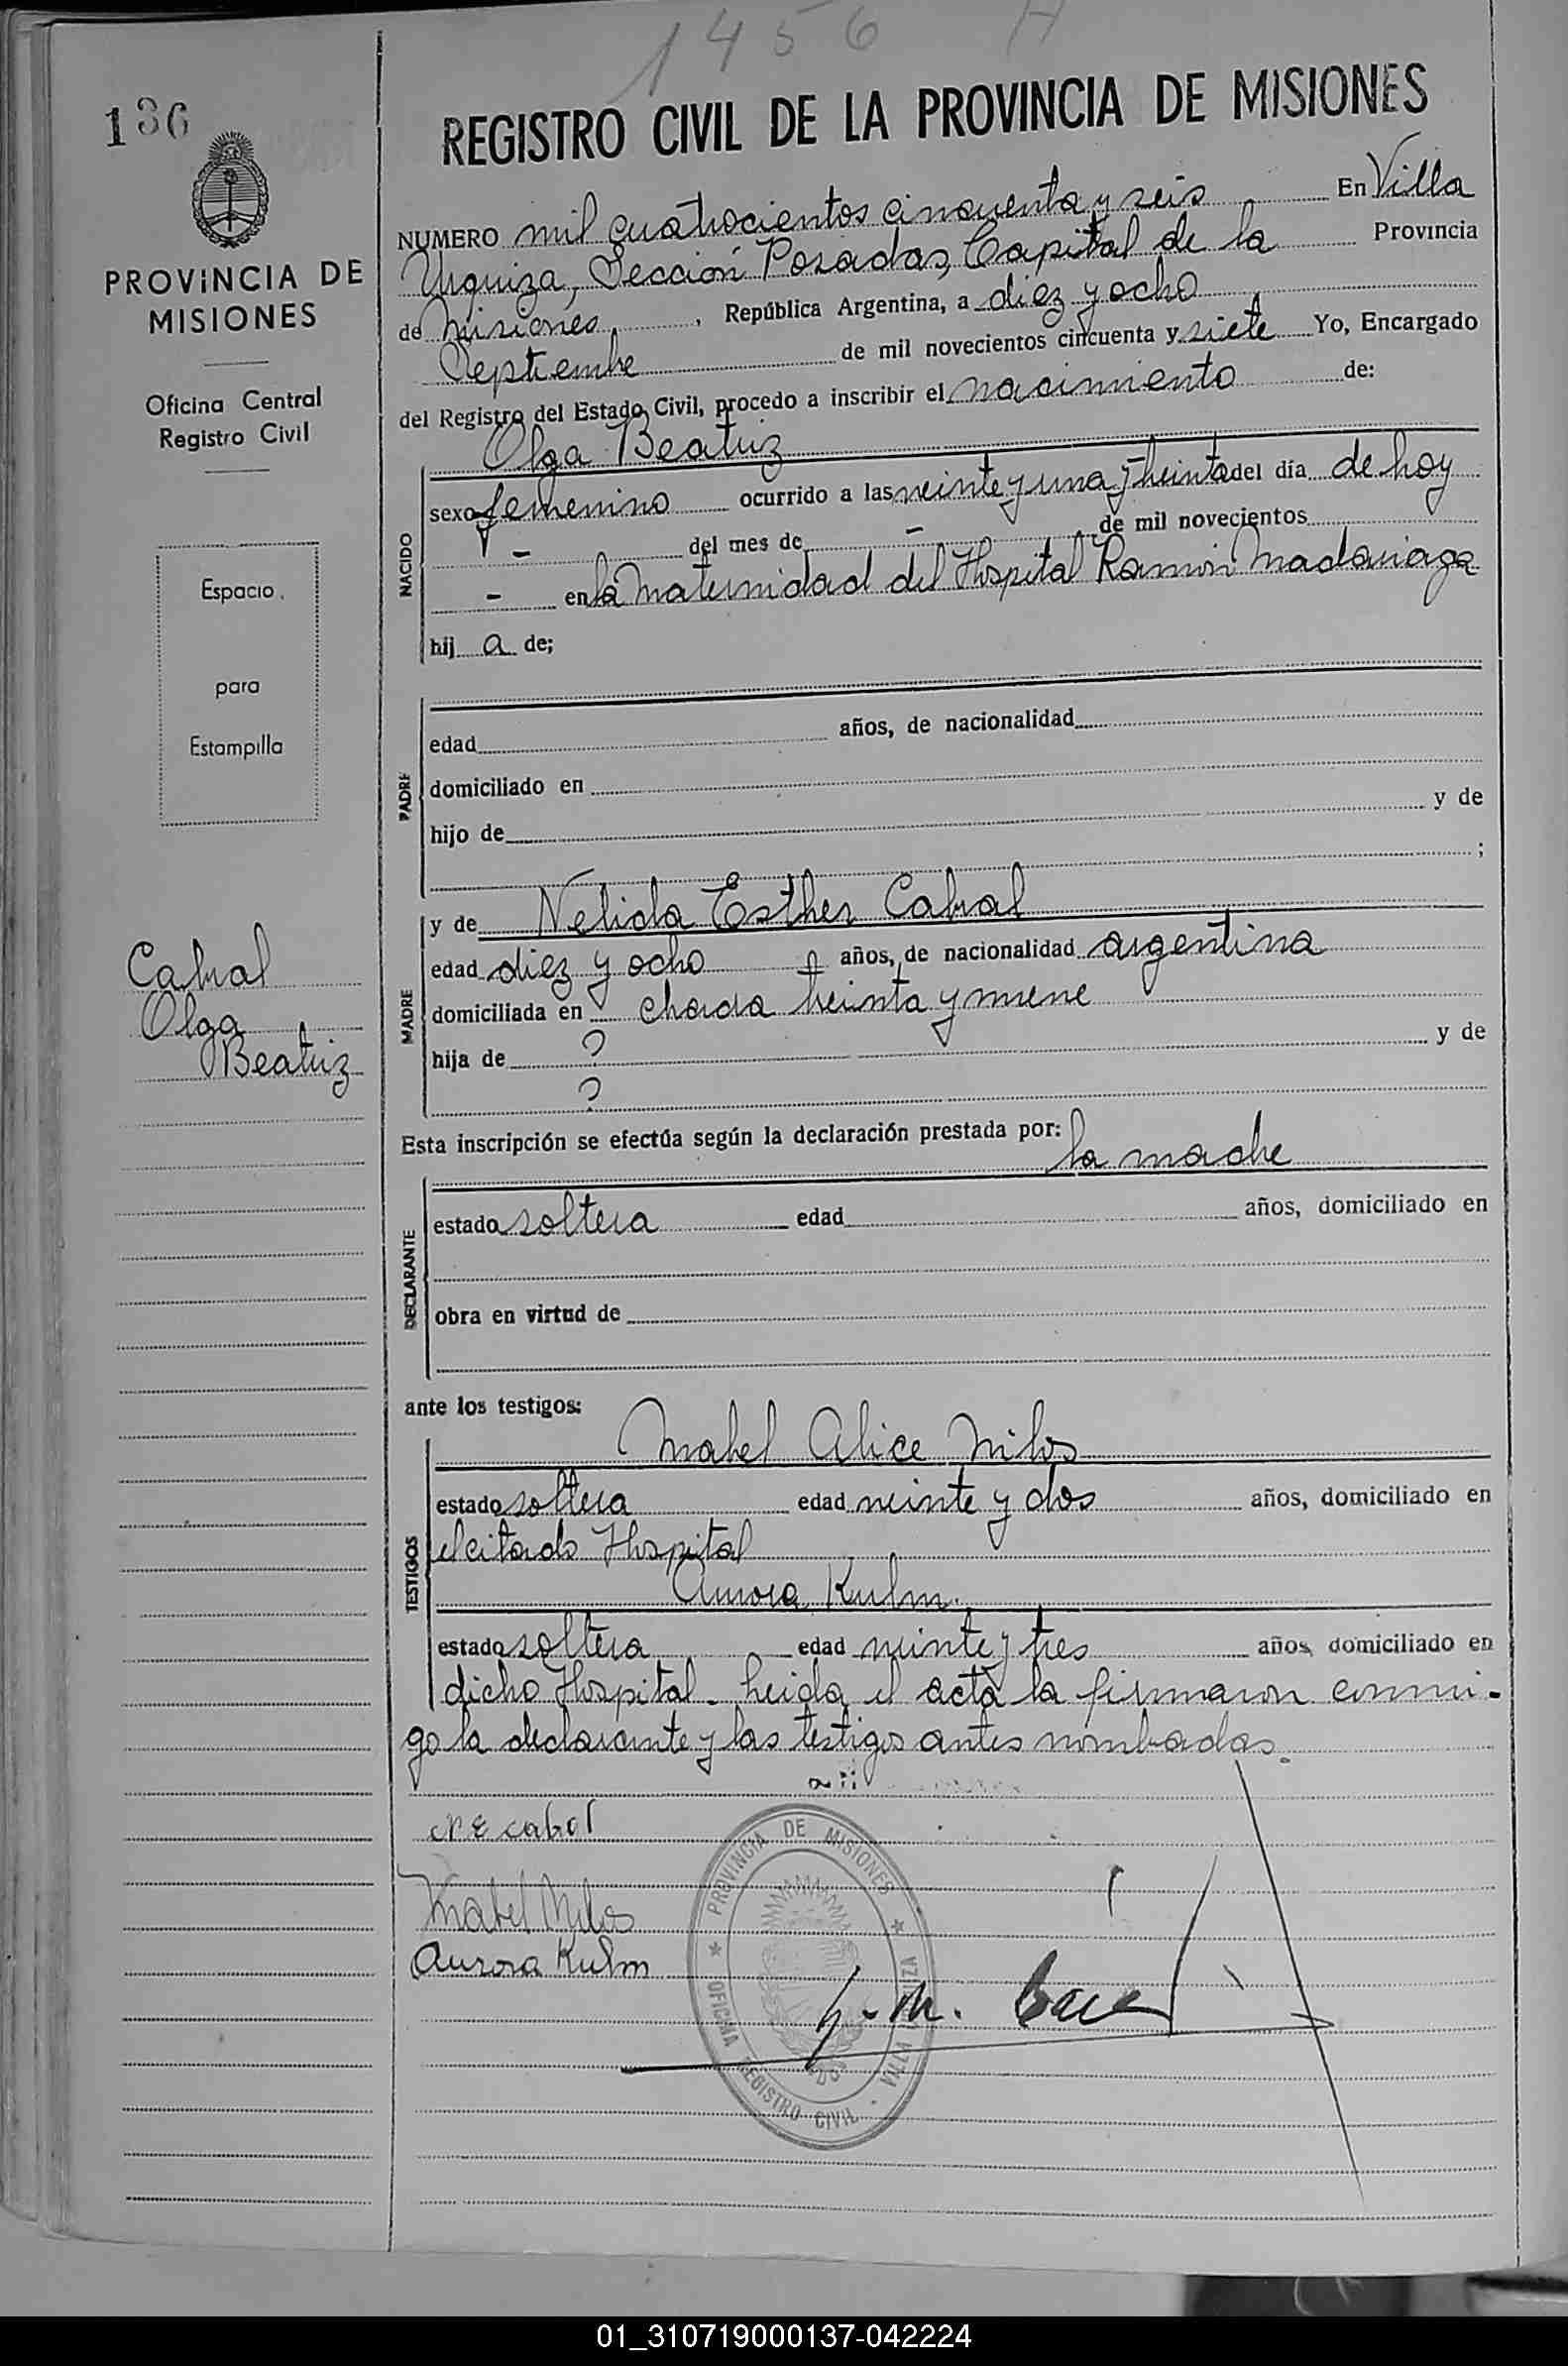 1456 A
136
REGISTRO CIVIL DE LA PROVINCIA DE MISIONES
PROVINCIA DE
MISIONES
Oficina Central
Registro Civil
Espacio
para
Estampilla
Cabral
Olga
Beatriz
NUMERO mil cuatrocientos cincuenta y seis En Villa
Urquiza, Sección Posadas, Capital de la Provincia
de Misiones, República Argentina, a diez y ocho
Septiembre de mil novecientos cincuenta y siete Yo, Encargado
del Registro del Estado Civil, procedo a inscribir el nacimiento de:
Olga Beatriz
NACIDO
sexo femenino ocurrido a las veinte y una y treinta del día de hoy
- del mes de - de mil novecientos
- en la Maternidad del Hospital Ramón Madariaga
hij a de;
PADRE
edad años, de nacionalidad
domiciliado en
hijo de y de
;
MADRE
y de Nelida Esther Cabral
edad diez y ocho años, de nacionalidad argentina
domiciliada en chacra treinta y nueve
hija de ? y de
?
Esta inscripción se efectúa según la declaración prestada por:
la madre
DECLARANTE
estado soltera edad años, domiciliado en
obra en virtud de
ante los testigos:
Mabel Alice Milos
TESTIGOS
estado soltera edad veinte y dos años, domiciliado en
el citado Hospital
Aurora Kulm.
estado soltera edad veinte y tres años, domiciliado en
dicho Hospital. Leida el acta la firmaron conmi-
go la declarante y las testigos antes nombradas.
N E cabral
Mabel Milos
Aurora Kulm
PROVINCIA DE MISIONES
OFICINA REGISTRO CIVIL - VILLA URQUIZA
01_310719000137-042224